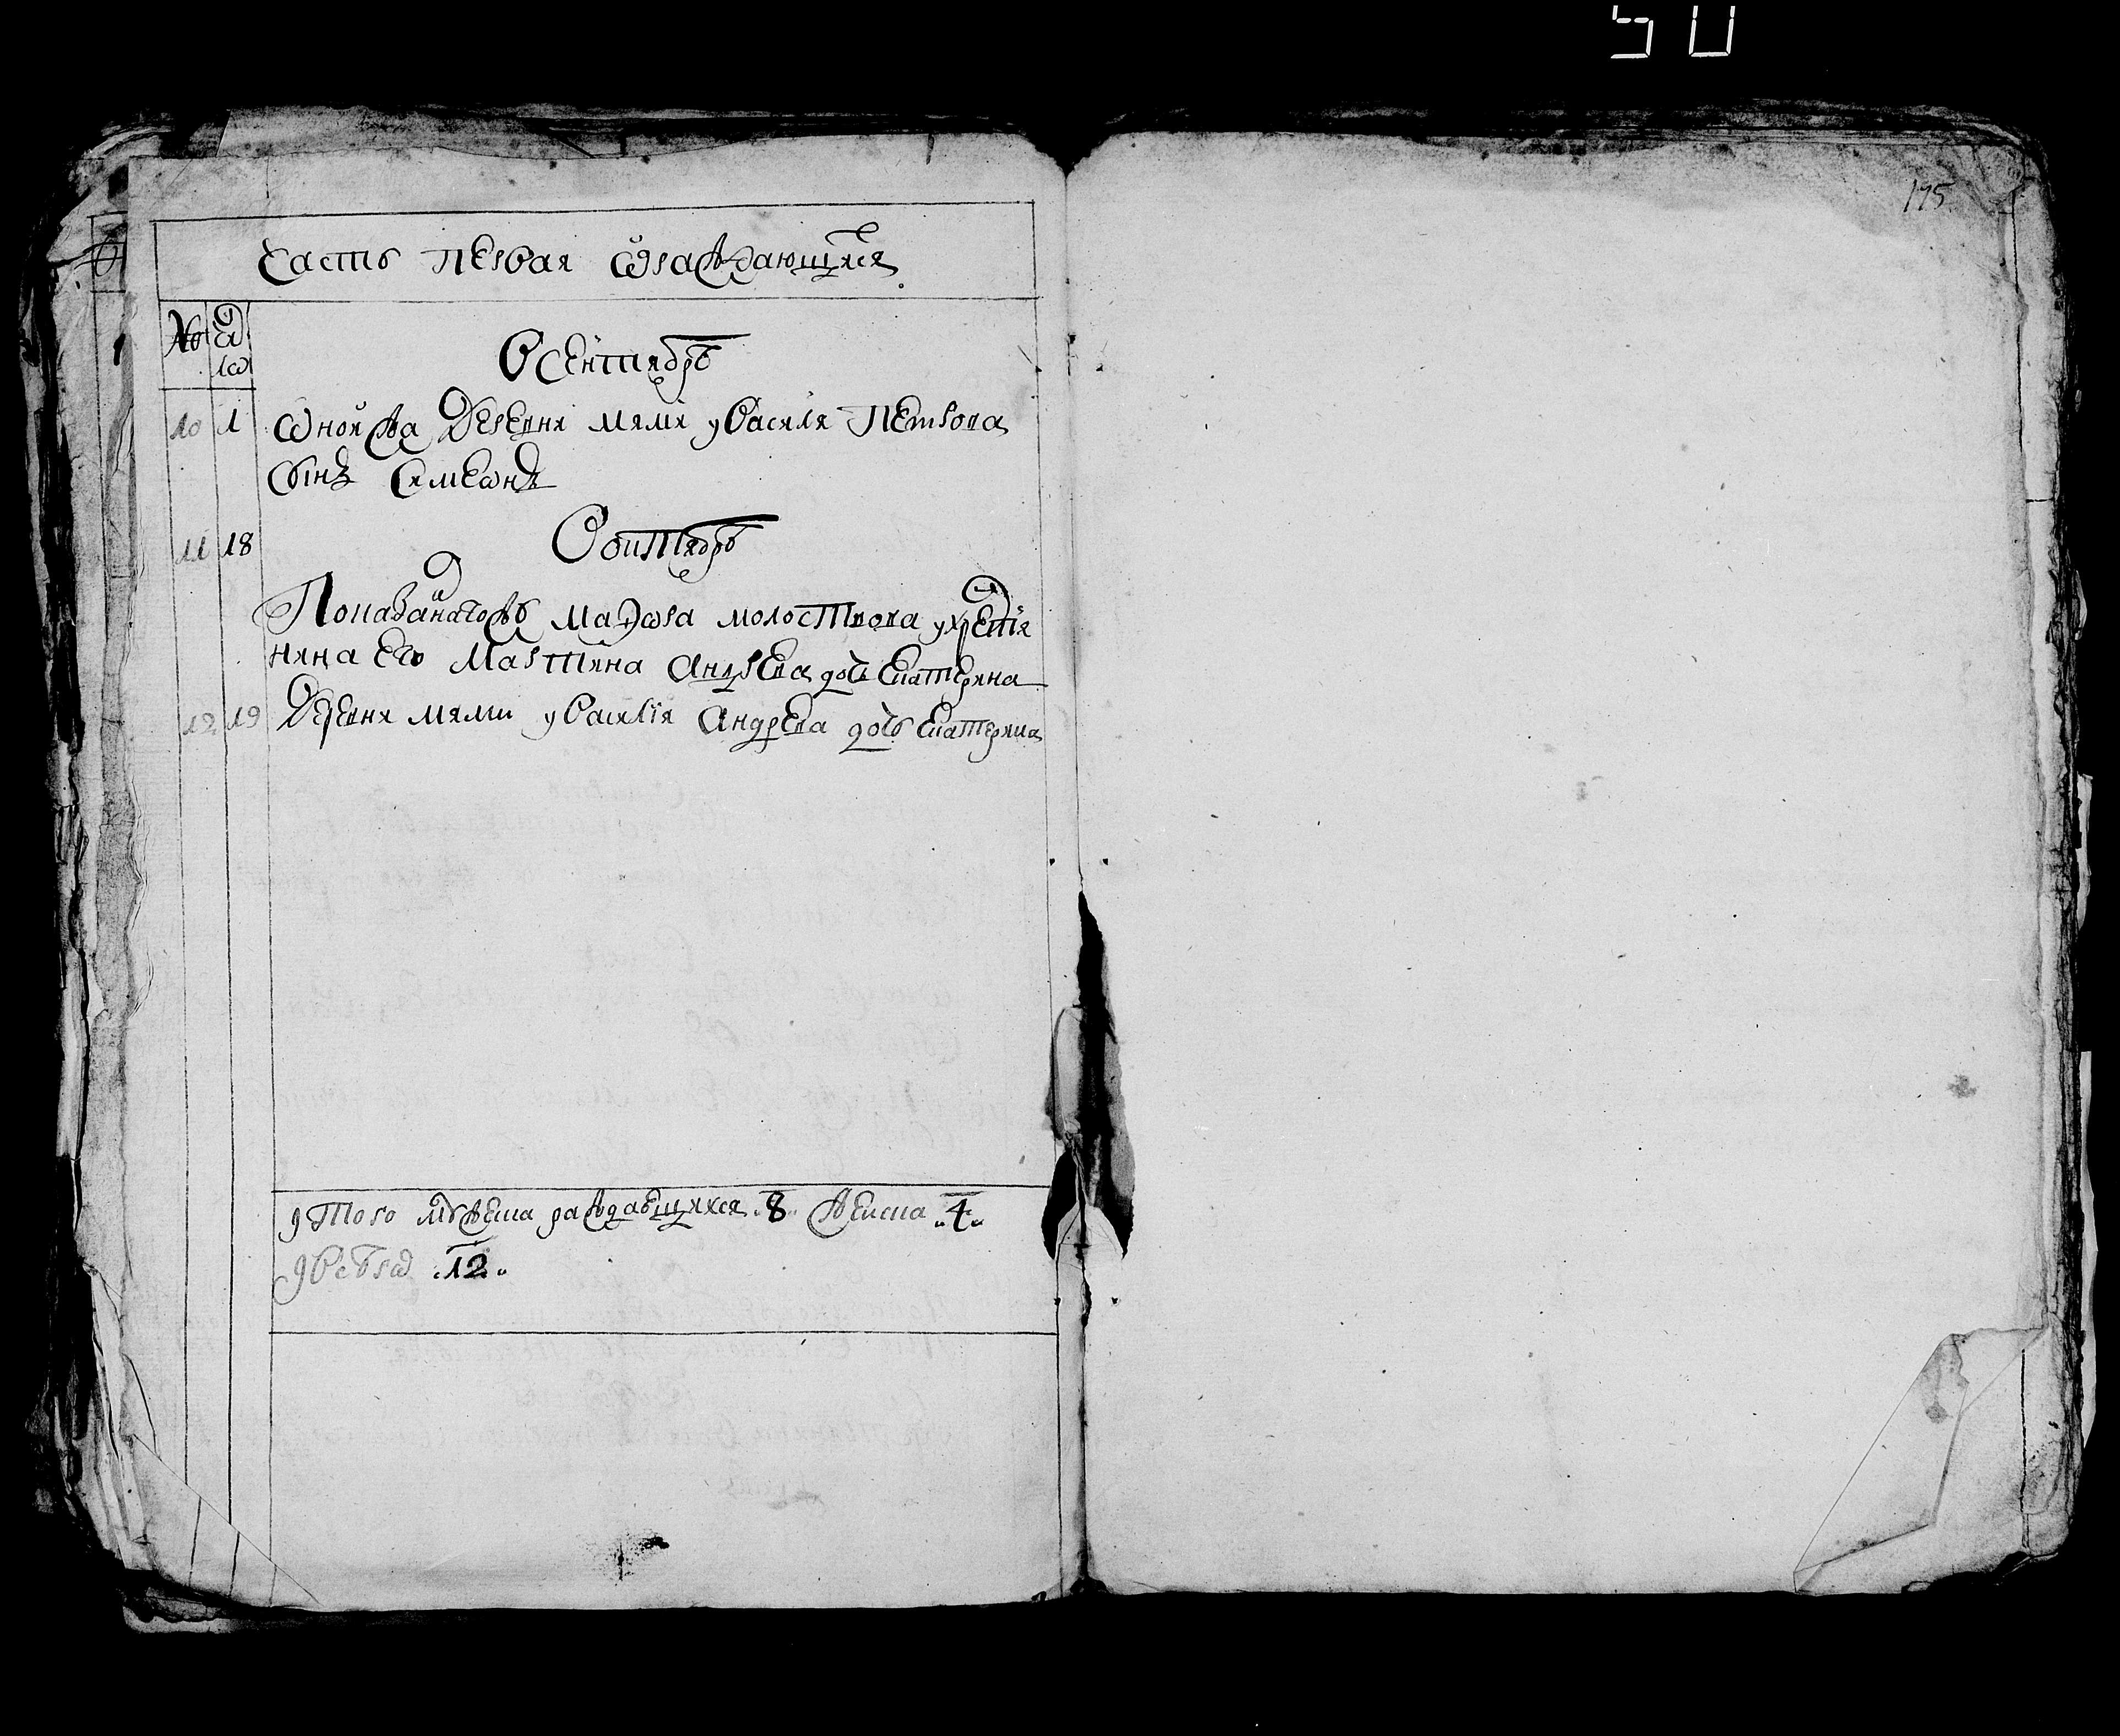 50
175
Часть первая ѡраждающихся
№ чісло
Всентябрѣ
10 1 ѡной жа деревни мами у Василя Петрова
сынъ Симеѡнъ
11 18 Воктябрѣ
маѡра молоствова у крестья
нина его Мартина Андреева дочь Екатерина
12 19 Деревни мами у Василїя Андреева дочь Екатерина
итого мужеска раждавшихся 8 женска 4
12